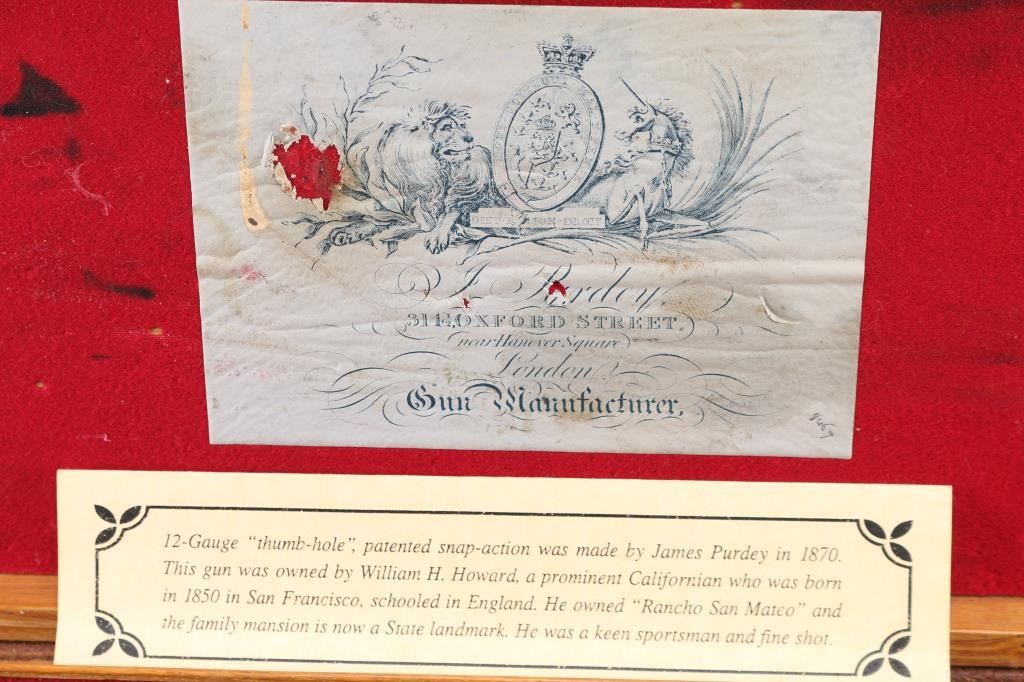 DIEU ET MON DROIT
J. Purdey,
314½ OXFORD STREET,
(near Hanover Square)
London.
Gun Manufacturer,
12-Gauge "thumb-hole", patented snap-action was made by James Purdey in 1870.
This gun was owned by William H. Howard, a prominent Californian who was born
in 1850 in San Francisco, schooled in England. He owned "Rancho San Mateo" and
the family mansion is now a State landmark. He was a keen sportsman and fine shot.